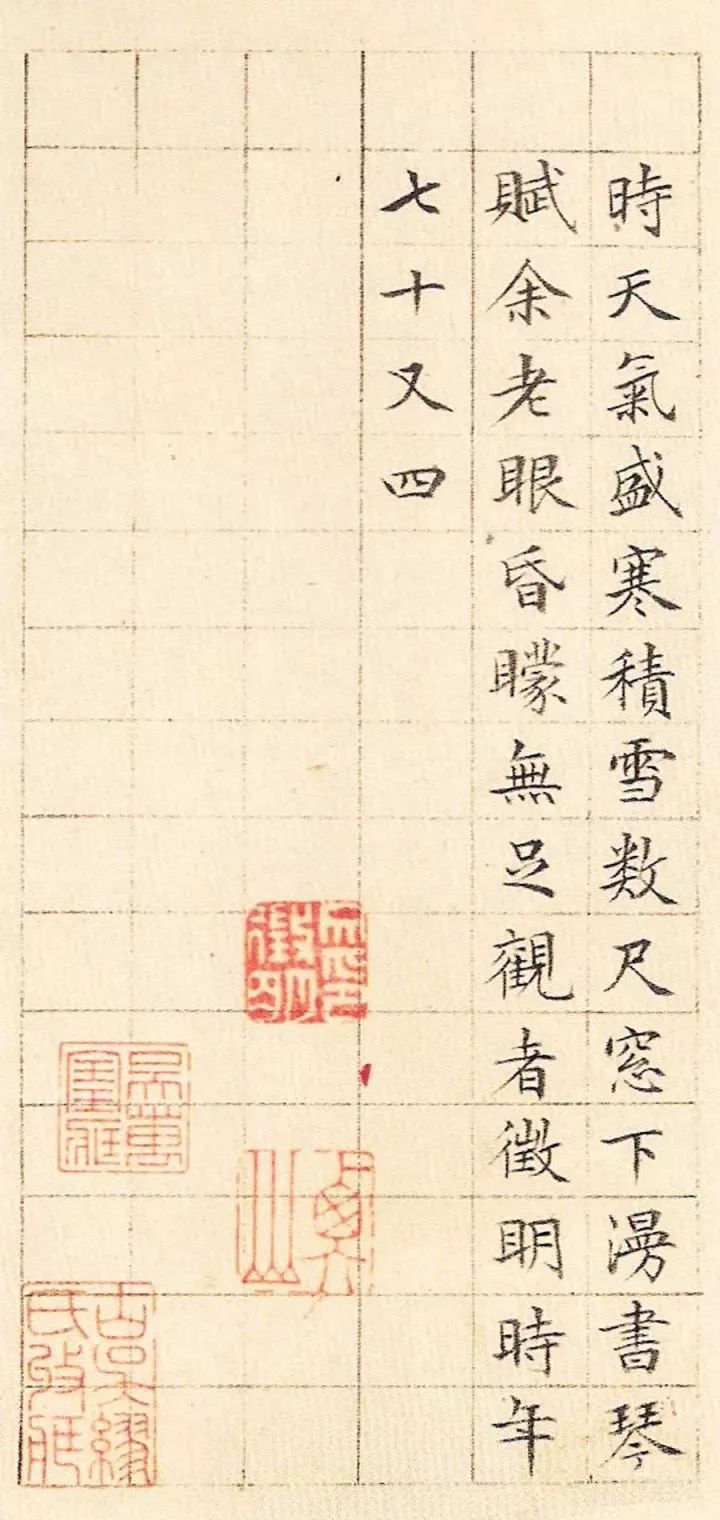 時天氣盛寒積雪数尺窓下漫書琴
賦余老眼昏矇無足觀者徵明時年
七十又四